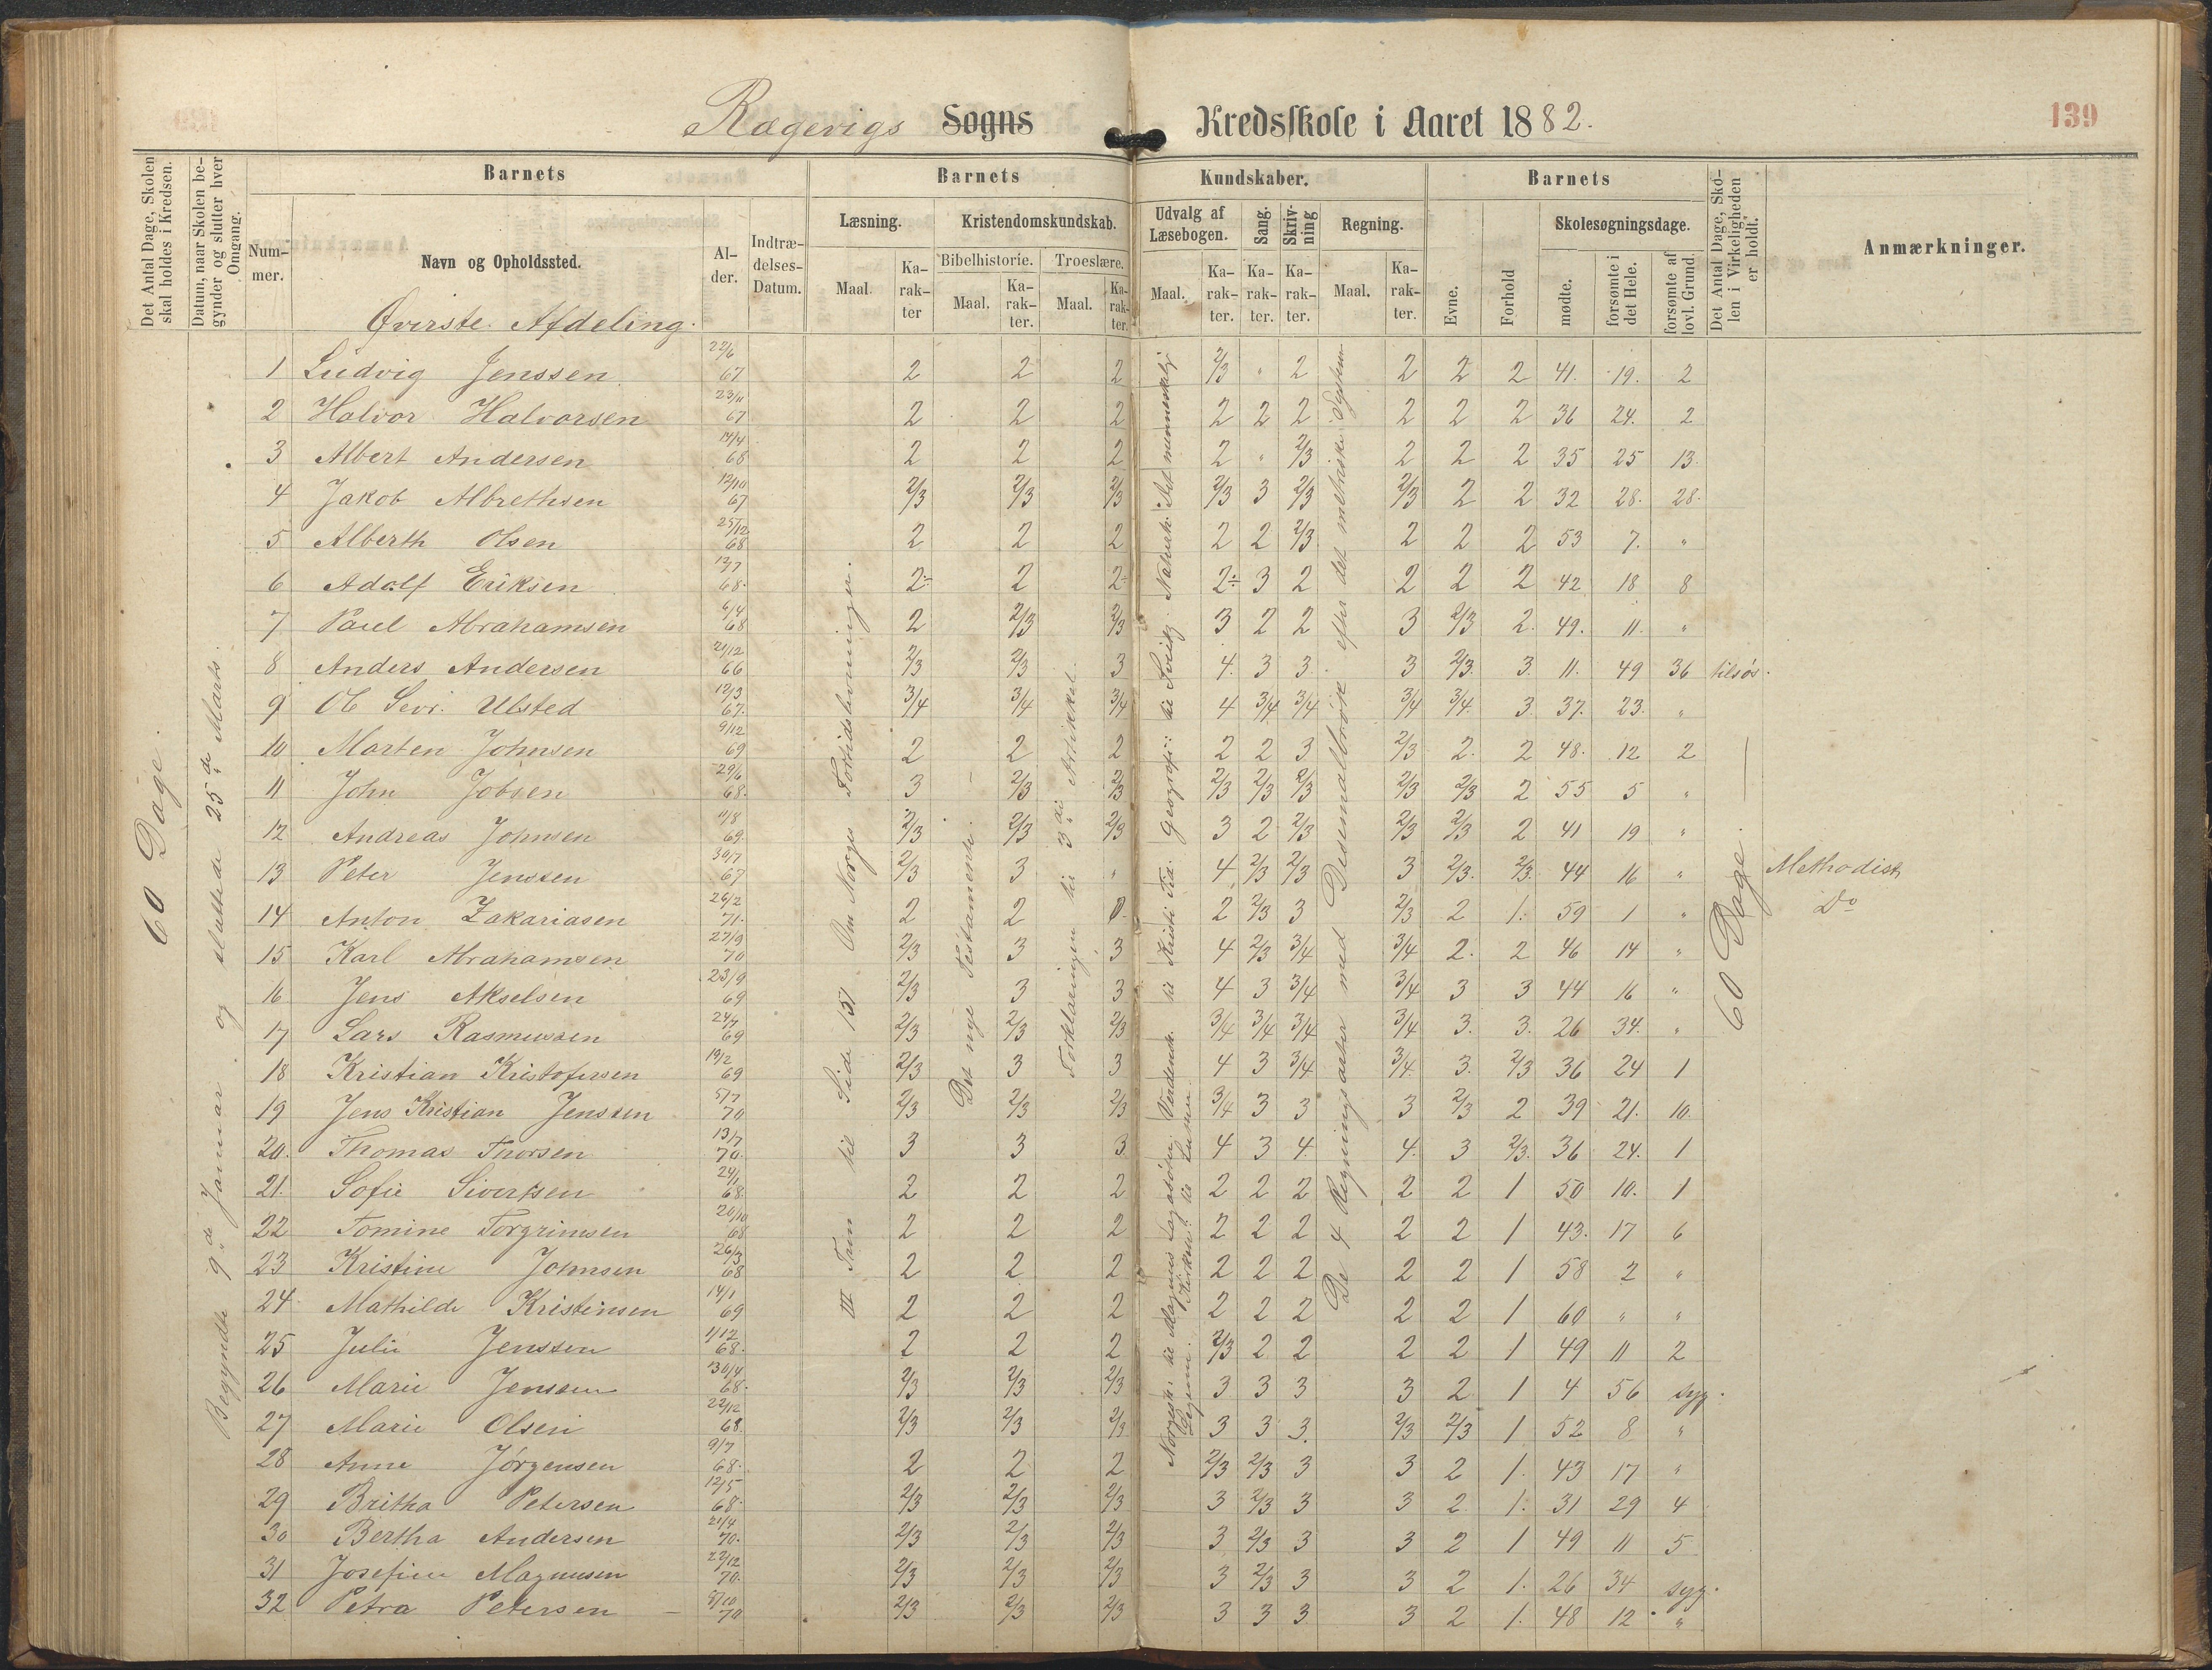 Rægevigs Sogns Kredsskole i Aaret 1882.
139
Det Antal Dage, Skolen skal holdes i Kredsen.
Datum, naar Skolen begynder og slutter hver Omgang.
Barnets
Barnets
Kundskaber.
Barnets
Det Antal Dage, Skolen i Virkeligheden er holdt.
Anmærkninger.
Nummer.
Navn og Opholdssted.
Alder.
Indtrædelses-Datum.
Læsning.
Kristendomskundskab.
Udvalg af Læsebogen.
Sang.
Skrivning
Regning.
Evne.
Forhold
Skolesøgningsdage.
Bibelhistorie.
Troeslære.
Maal. Karakter
Maal. Karakter.
Maal. Karakter.
Maal. Karakter.
Karakter.
Karakter.
Maal. Karakter.
mødte.
forsømte i det Hele.
forsømte af lovl. Grund.
Øverste Afdeling.
60 Dage.
Begyndte 9de Januar og sluttede 25de Marts.
III Trin til Side 151 Om Norges Fortidslevninger.
Det nye Testamente.
Forklaringen til 3die Artikkel.
De 4 Regningsarter med Desemalbrøk efter det metriske System
60 Dage.
1 Ludvig Jenssen 22/6 67 2 2 2 2/3 " 2 2 2 2 41. 19. 2
2 Halvor Halvorsen 23/11 67 2 2 2 2 2 2 2 2 2 36 24. 2
3 Albert Andersen 14/4 68 2 2 2 2 " 2/3 2 2 2 35 25 13.
4 Jakob Albrethsen 12/10 67 2/3 2/3 2/3 2/3 3 2/3 2/3 2 2 32 28. 28.
5 Alberth Olsen 25/12 68 2 2 2 2 2 2/3 2 2 2 53 7. "
6 Adolf Eriksen 13/7 68. 2÷ 2 2÷ 2÷ 3 2 2 2 2 42 18 8
7 Paul Abrahamsen 6/4 68 2 2/3 2/3 3 2 2 3 2/3 2. 49. 11. "
8 Anders Andersen 21/12 66 2/3 2/3 3 4. 3 3. 3 2/3. 3. 11. 49 36 tilsøs.
9 Ol Sevr. Ulsted 12/3 67. 3/4 3/4 3/4 4 3/4 3/4 3/4 3/4. 3. 37. 23. "
10 Marten Johnsen 9/12 69 2 2 2 2 2 3 2/3 2. 2 48. 12 2
11 John Jobsen 29/6 68. 3 2/3 2/3 2/3 2/3 2/3 2/3 2/3 2 55 5 "
12 Andreas Johnsen 11/8 69. 2/3 2/3 2/3 3 2 2/3 2/3 2/3 2 41 19 "
13 Peter Jenssen 30/7 67 2/3 3 " 4 2/3 2/3 3 2/3. 2/3. 44 16 " Methodisk
14 Anton Zakariasen 26/2 71. 2 2 0. 2 2/3 3 2/3 2 1. 59 1 " Do
15 Karl Abrahamsen 27/9 70 2/3 3 3 4 2/3 3/4 3/4 2. 2 46 14 "
16 Jens Akselsen 23/9 69 2/3 3 3 4 3 3/4 3/4 3 3 44 16 "
17 Lars Rasmussen 24/7 69 2/3 2/3 2/3 3/4 3/4 3/4 3/4 3. 3. 26 34. "
18 Kristian Kristofersen 19/2 69 2/3 3 3 4 3 3/4 3/4. 3. 2/3 36 24 1
19 Jens Kristian Jenssen 5/7 70 2/3 2/3 2/3 3/4 3 3 3 2/3 2 39 21. 10.
20. Thomas Thorsen 13/7 70. 3 3 3. 4 3 4. 4. 3 2/3. 36 24. 1
21. Sofie Sivertsen 24/1 68. 2 2 2 2 2 2 2 2 1 50 10. 1
22 Tomine Torgrimsen 20/10 68 2 2 2 2 2 2 2 2 1 43. 17 6
23 Kristine Johnsen 26/3 68 2 2 2 2 2 2 2 2 1 58 2 "
24 Mathilde Kristensen 14/1 69 2 2 2 2 2 2 2 2 1 60 " "
25 Julie Jenssen 1/12 68. 2 2 2 2/3 2 2 2 2 1 49 11 2
26 Marie Jensen 30/4 68. 2/3 2/3 2/3 3 3 3 3 2 1 4 56 syg.
27 Marie Olsen 22/12 68. 2/3 2/3 2/3 3 3 3. 2/3 2/3 1 52 8 "
28 Anne Jørgensen 9/7 68. 2 2 2 2/3 2/3 3 3 2 1. 43 17 "
29 Britha Petersen 12/5 68. 2/3 2/3 2/3 3 2/3 3 3 2 1. 31 29 4
30 Bertha Andersen 21/4 70. 2/3 2/3 2/3 3 2/3 3 3 2 1 49 11 5
31 Josefine Magnusen 22/12 70. 2/3 2/3 2/3 3 2/3 3 3 2 1. 26 34 syg.
32 Petra Petersen 8/10 70 2/3 2/3 2/3 3 3 3 3 2 1. 48 12 "